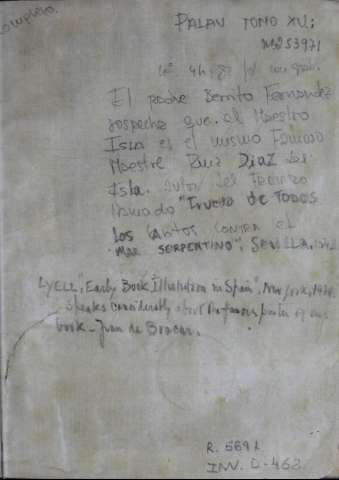 completo.
PALAU TOMO XV;
Nº253971
4h; gr.
El padre Benito Fernandez
sospecha que el Maestro
Isla es el mismo Famoso
Maestre Ruiz DIAZ de
Isla. Autor del Tratado
llamado "Fructo de TODOS
LOS SANTOS CONTRA el
MAL SERPENTINO", SEVILLA,
LYELL, "Early Book Illustration in Spain", New york, 1926.
speaks considerably about the famous printer of our
book - Juan de Brocar.
R. 5591
INV. D-462